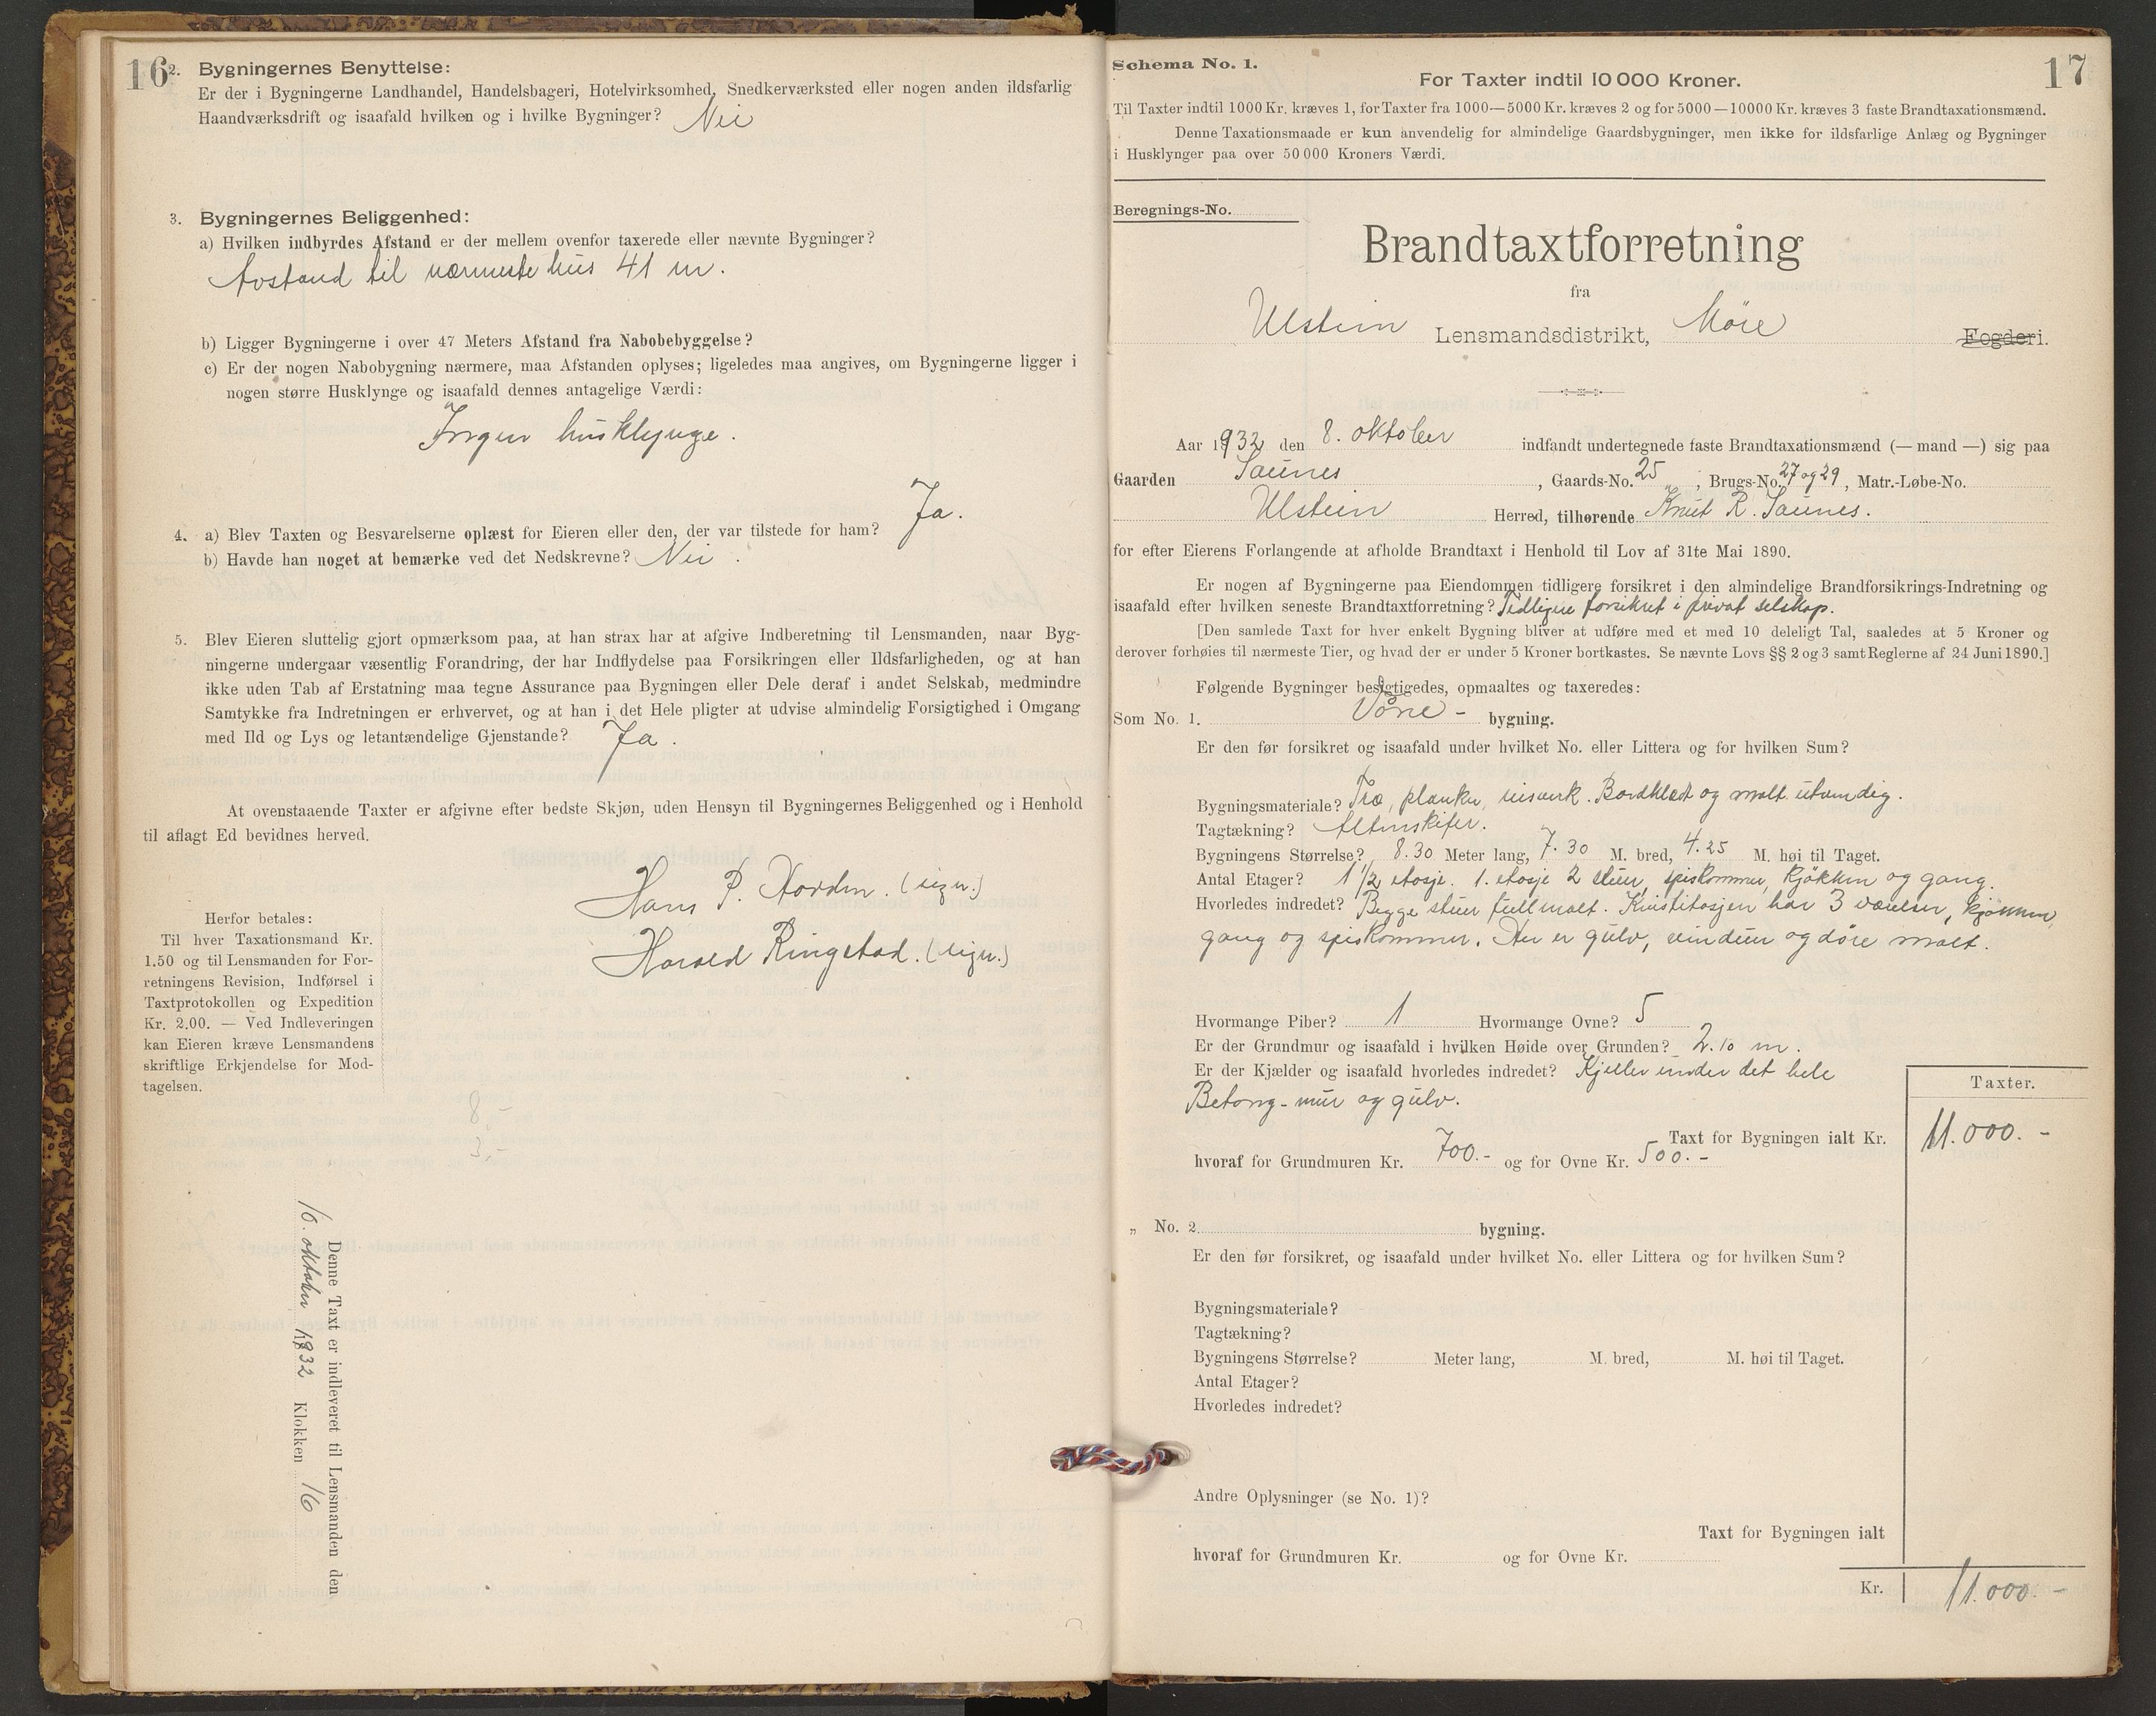 16
2. Bygningernes Benyttelse:
Er der i Bygningerne Landhandel, Handelsbageri, Hotelvirksomhed, Snedkerværksted eller nogen anden ildsfarlig
Haandværksdrift og isaafald hvilken og i hvilke Bygninger? Nei
3. Bygningernes Beliggenhed:
a) Hvilken indbyrdes Afstand er der mellem ovenfor taxerede eller nævnte Bygninger?
Avstand til nærmeste hus 41 m.
b) Ligger Bygningerne i over 47 Meters Afstand fra Nabobebyggelse?
c) Er der nogen Nabobygning nærmere, maa Afstanden oplyses; ligeledes maa angives, om Bygningerne ligger i
nogen større Husklynge og isaafald dennes antagelige Værdi:
Ingen husklynge.
4. a) Blev Taxten og Besvarelserne oplæst for Eieren eller den, der var tilstede for ham? Ja.
b) Havde han noget at bemærke ved det Nedskrevne? Nei.
5. Blev Eieren sluttelig gjort opmærksom paa, at han strax har at afgive Indberetning til Lensmanden, naar Byg-
ningerne undergaar væsentlig Forandring, der har Indflydelse paa Forsikringen eller Ildsfarligheden, og at han
ikke uden Tab af Erstatning maa tegne Assurance paa Bygningen eller Dele deraf i andet Selskab, medmindre
Samtykke fra Indretningen er erhvervet, og at han i det Hele pligter at udvise almindelig Forsigtighed i Omgang
med Ild og Lys og letantændelige Gjenstande? Ja.
At ovenstaaende Taxter er afgivne efter bedste Skjøn, uden Hensyn til Bygningernes Beliggenhed og i Henhold
til aflagt Ed bevidnes herved.
Hans P. (sign.)
Harald Ringstad. (sign.)
Herfor betales:
Til hver Taxationsmand Kr.
1.50 og til Lensmanden for For-
retningens Revision, Indførsel i
Taxtprotokollen og Expedition
Kr. 2.00. — Ved Indleveringen
kan Eieren kræve Lensmandens
skriftlige Erkjendelse for Mod-
tagelsen.
8,-
3,-
Denne Taxt er indleveret til Lensmanden den
10. oktober 1932 Klokken 16
Schema No. 1.
17
For Taxter indtil 10 000 Kroner.
Til Taxter indtil 1000 Kr. kræves 1, for Taxter fra 1000—5000 Kr. kræves 2 og for 5000—10000 Kr. kræves 3 faste Brandtaxationsmænd.
Denne Taxationsmaade er kun anvendelig for almindelige Gaardsbygninger, men ikke for ildsfarlige Anlæg og Bygninger
i Husklynger paa over 50 000 Kroners Værdi.
Beregnings-No.
Brandtaxtforretning
fra
Ulstein Lensmandsdistrikt, Møre Fogderi.
Aar 1932 den 8. oktober indfandt undertegnede faste Brandtaxationsmænd (— mand —) sig paa
Gaarden Saunes, Gaards-No. 25, Brugs-No. 27 og 29, Matr.-Løbe-No.
Ulstein Herred, tilhørende Knut R. Saunes.
for efter Eierens Forlangende at afholde Brandtaxt i Henhold til Lov af 31te Mai 1890.
Er nogen af Bygningerne paa Eiendommen tidligere forsikret i den almindelige Brandforsikrings-Indretning og
isaafald efter hvilken seneste Brandtaxtforretning? Tidligere forsikret i privat selskap.
[Den samlede Taxt for hver enkelt Bygning bliver at udføre med et med 10 deleligt Tal, saaledes at 5 Kroner og
derover forhøies til nærmeste Tier, og hvad der er under 5 Kroner bortkastes. Se nævnte Lovs §§ 2 og 3 samt Reglerne af 24 Juni 1890.]
Følgende Bygninger besigtigedes, opmaaltes og taxeredes:
Som No. 1. Våne- bygning.
Er den før forsikret og isaafald under hvilket No. eller Littera og for hvilken Sum?
Bygningsmateriale? Træ, planke, reisverk. Bordklædt og malt utvendig.
Tagtækning? Altenskifer.
Bygningens Størrelse? 8.30 Meter lang, 7.30 M. bred, 4.25 M. høi til Taget.
Antal Etager? 1 1/2 etasje. 1. etasje 2 stuer, spiskammer, kjøkken og gang.
Hvorledes indredet? Begge stuer fullmalt. Kvistetasjen har 3 værelser, kjøkken,
gang og spiskammer. Der er gulv, vinduer og døre malt.
Hvormange Piber? 1 Hvormange Ovne? 5
Er der Grundmur og isaafald i hvilken Høide over Grunden? 2.10 m.
Er der Kjælder og isaafald hvorledes indredet? Kjeller under det hele
Betong-mur og gulv.
Taxter.
Taxt for Bygningen ialt Kr. 11.000.-
hvoraf for Grundmuren Kr. 700.- og for Ovne Kr. 500.-
„ No. 2 bygning.
Er den før forsikret, og isaafald under hvilket No. eller Littera og for hvilken Sum?
Bygningsmateriale?
Tagtækning?
Bygningens Størrelse? Meter lang, M. bred, M. høi til Taget.
Antal Etager?
Hvorledes indredet?
Andre Oplysninger (se No. 1)?
Taxt for Bygningen ialt
hvoraf for Grundmuren Kr. og for Ovne Kr.
Kr. 11.000.-